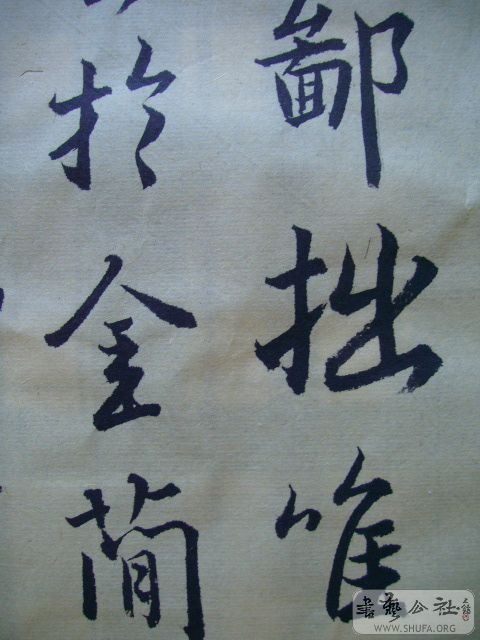 鄙拙唯
於金簡
書藝公社
WWW.SHUFA.ORG